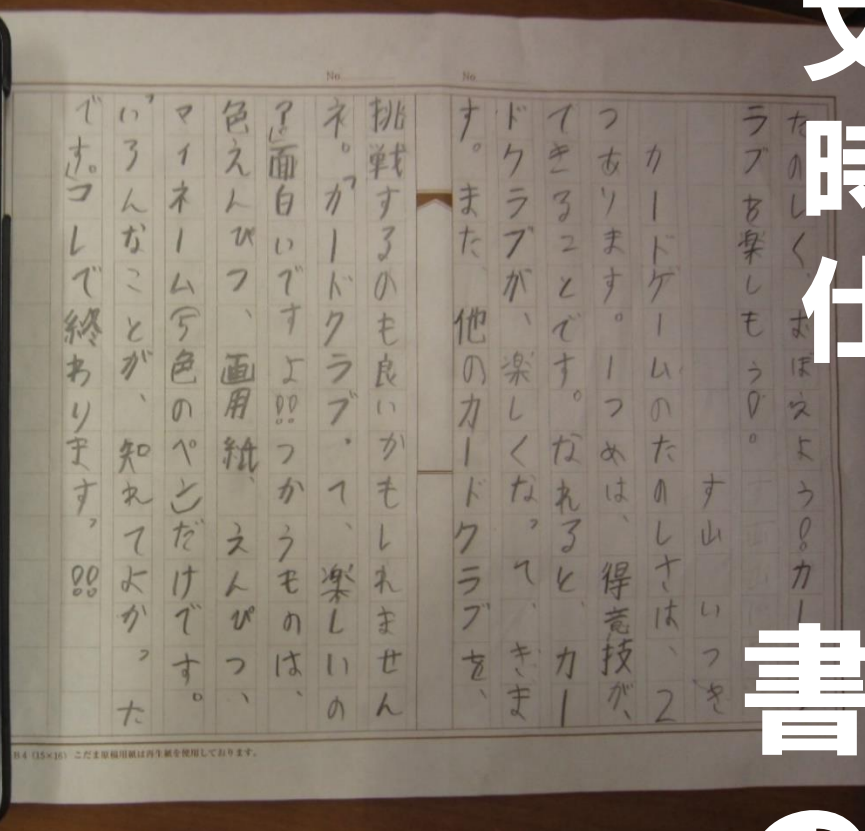 たのしく、おぼえよう!カー
ラブを楽しもう!。
す山 いつき
カードゲームのたのしさは、2
つあります。1つめは、得意技が、
てきることです。なれると、カー
ドクラブが、楽しくなって、きま
す。また、他のカードクラブを、
挑戦するのも良いかもしれません
ネ。「カードクラブ。て、楽しいの
?」面白いですよ!!つかうものは、
色えんぴつ、画用紙、えんぴつ、
マイネーム(5色のペン)だけです。
「いろんなことが、知れてよかった
です。」コレで終わります。!!
No
No
B4 (15×16) こだま原稿用紙は再生紙を使用しております。
文
時
仕
書
の